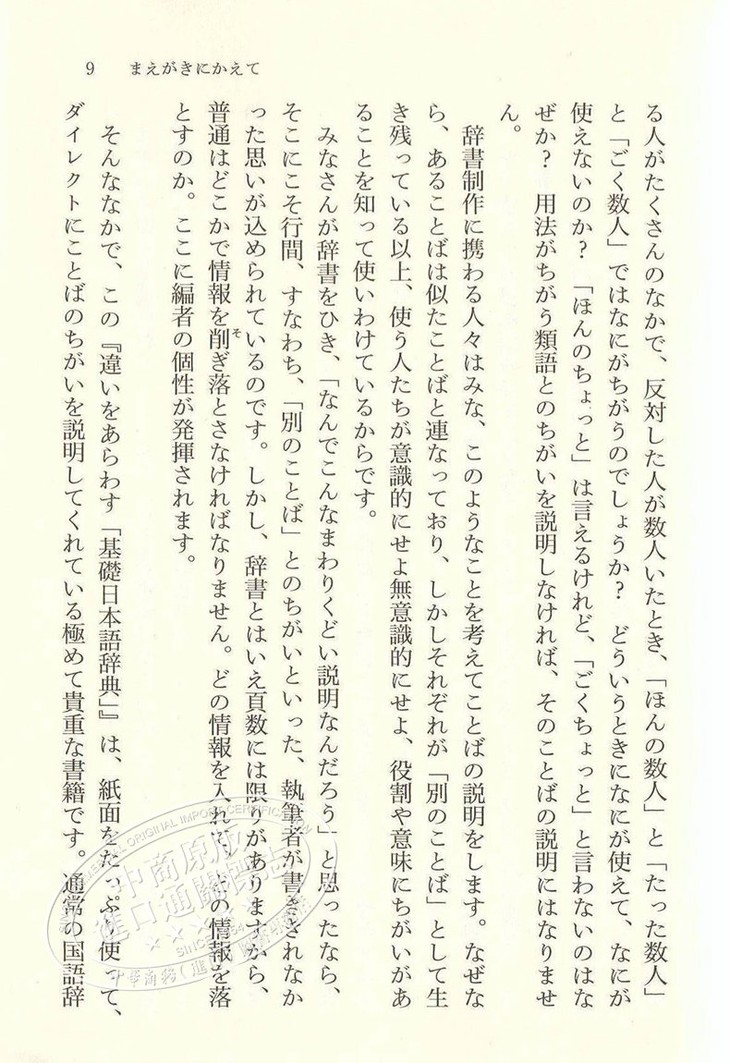 9 まえがきにかえて
る人がたくさんのなかで、反対した人が数人いたとき、「ほんの数人」と「たった数人」
と「ごく数人」ではなにがちがうのでしょうか? どういうときになにが使えて、なにが
使えないのか? 「ほんのちょっと」は言えるけれど、「ごくちょっと」と言わないのはな
ぜか? 用法がちがう類語とのちがいを説明しなければ、そのことばの説明にはなりませ
ん。
辞書制作に携わる人々はみな、このようなことを考えてことばの説明をします。なぜな
ら、あることばは似たことばと連なっており、しかしそれぞれが「別のことば」として生
き残っている以上、使う人たちが意識的にせよ無意識的にせよ、役割や意味にちがいがあ
ることを知って使いわけているからです。
みなさんが辞書をひき、「なんでこんなまわりくどい説明なんだろう」と思ったなら、
そこにこそ行間、すなわち、「別のことば」とのちがいといった、執筆者が書ききれなか
った思いが込められているのです。しかし、辞書とはいえ頁数には限りがありますから、
普通はどこかで情報を削ぎ落とさなければなりません。どの情報を入れて、どの情報を落
そ
とすのか。ここに編者の個性が発揮されます。
そんななかで、この『違いをあらわす「基礎日本語辞典」』は、紙面をたっぷり使って、
ダイレクトにことばのちがいを説明してくれている極めて貴重な書籍です。通常の国語辞
中商原版
進口通關
SINCE 1984